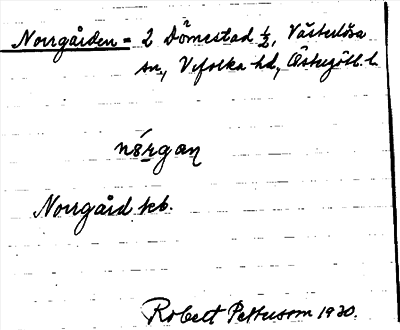 Norrgården = 2 Dömestad ½, Västerlösa
sn, Vifolka hd, Östergötl. l.
Norrgård jeb.
Robert Pettersson 1930.